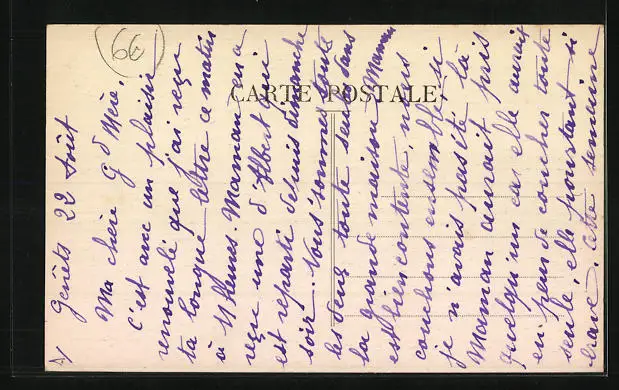 66
CARTE POSTALE
A/ Genêts 22 Août
Ma chère Gd Mère,
C'est avec un plaisir
renouvelé que j'ai reçu
ta longue lettre ce matin
à 11 heures. Maman en a
reçu une d'Albert qui
est reparti depuis dimanche
soir. Nous sommes toute
les deux toute seule dans
la grande maison Maman
est bien contente, nous
couchons ensemble si
je n'avais pas été là
Maman aurait pris
quelqu'un car elle aurait
eu peu de coucher toute
seule elle pourtant si
brave. Cette semaine